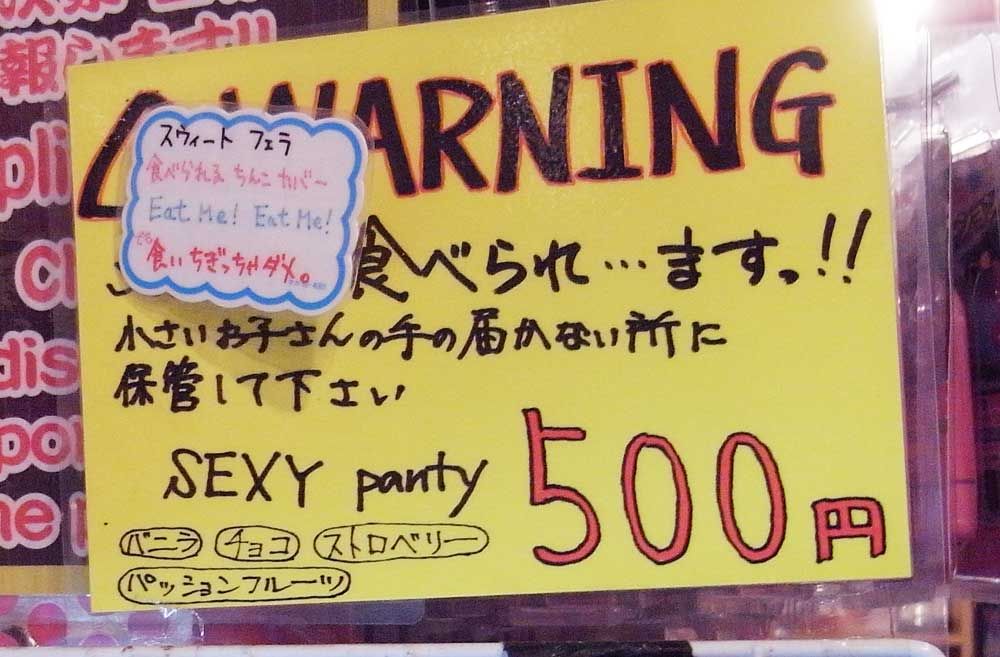 報らせます!!
WARNING
スウィート フェラ
食べられる ちんこ カバー
Eat Me! Eat Me!
でも
食いちぎっちゃダメ。
食べられ…ますっ!!
小さいお子さんの手の届かない所に
保管して下さい
SEXY panty
500円
バニラ チョコ ストロベリー
パッションフルーツ